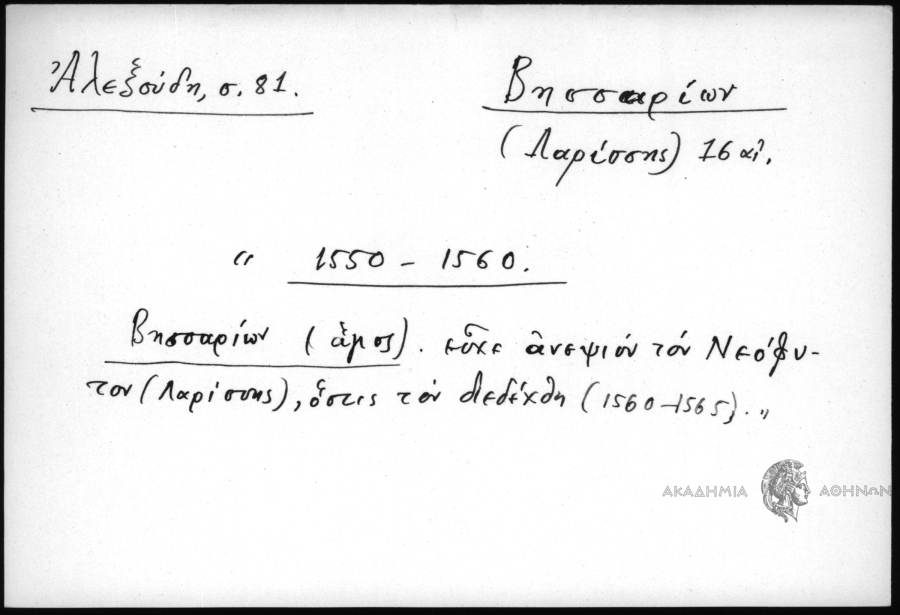 Ἀλεξούδη, σ. 81.
Βησσαρίων
(Λαρίσσης) 16 αἰ.
“ 1550 – 1560.
Βησσαρίων (ἅγιος). εἶχε ἀνεψιόν τόν Νεόφυ-
τον (Λαρίσσης), ὅστις τόν διεδέχθη (1560–1565). „
ΑΚΑΔΗΜΙΑ ΑΘΗΝΩΝ